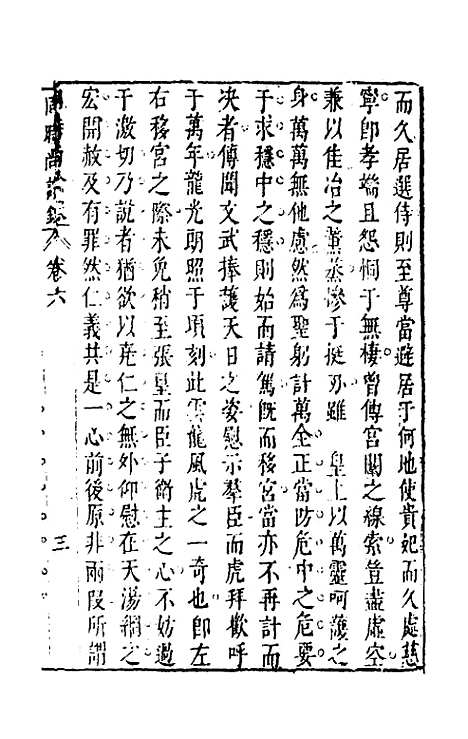 而久居選侍則至尊當避居于何地使貴妃而久處慈
寧卽孝端且怨恫于無棲曾傳宮闈之線索豈盡虛空
兼以佳冶之薰蒸慘于挺刃雖　皇上以萬靈呵護之
身萬萬無他慮然爲聖躬計萬全正當防危中之危要
于求穩中之穩則始而請篤旣而移宮當亦不再計而
决者傳聞文武捧護天日之姿慰示羣臣而虎拜歡呼
于萬年龍光朗照于頃刻此雲龍風虎之一奇也卽左
右移宮之際未免稍至張皇而臣子衛主之心不妨過
于激切乃說者猶欲以堯仁之無外仰慰在天湯網之
宏開赦及有罪然仁義其是一心前後原非兩段所謂
卷六
三